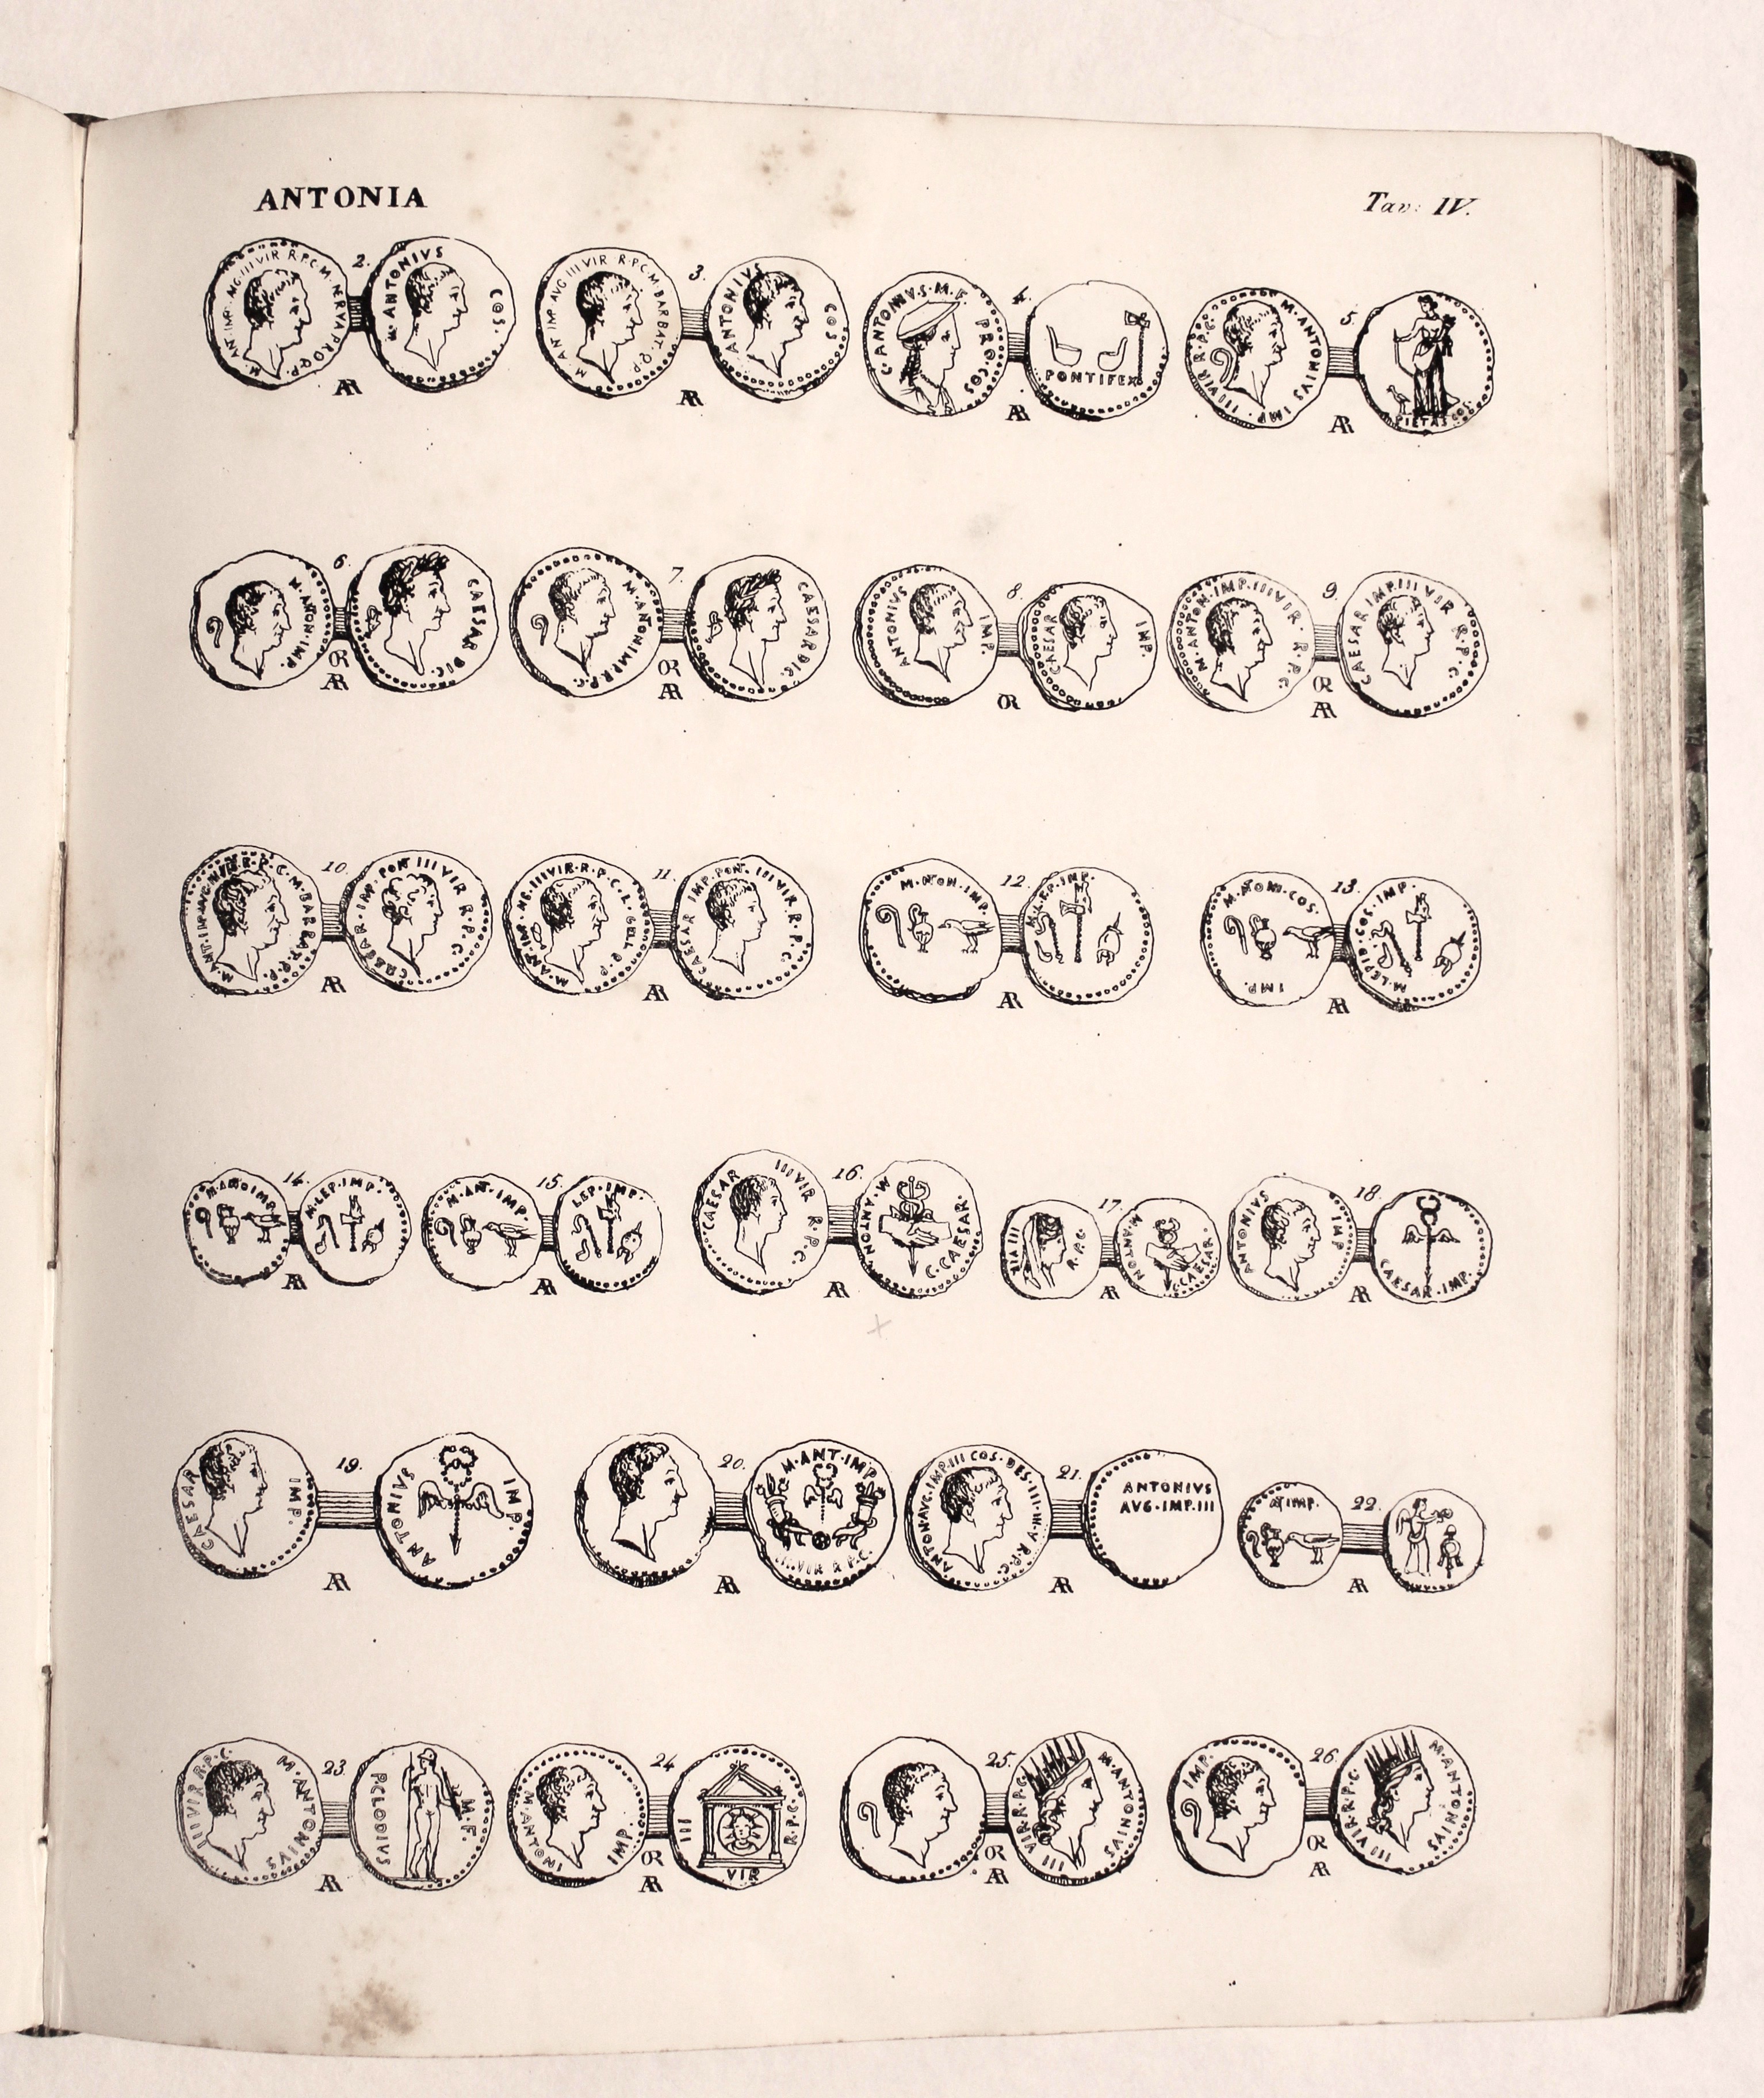 ANTONIA
Tav: IV.
2.
M. ANT. IMP. AVG. III VIR R.P.C. M. NERVA. PROQ.P.
M. ANTONIVS COS.
AR
3.
M ANT IMP. AVG III VIR R.P.C. M. BARBAT. Q.P.
ANTONIVS COS
AR
4.
C. ANTONIVS. M. F. PRO. COS
PONTIFEX
AR
5.
M. ANTONIVS IMP. III VIR R.P.C.
PIETAS COS.
AR
6.
M. ANTON. IMP.
CAESAR DIC.
OR
AR
7.
M. ANTON IMP. R.P.C.
CAESAR DIC.
OR
AR
8.
ANTONIVS IMP.
CAESAR IMP.
OR
9.
M. ANTON. IMP. III VIR. R. P. C.
CAESAR IMP. III VIR R. P. C
OR
AR
10.
M. ANT. IMP. AVG. III VIR. R. P. C. M. BARBAT.
CAESAR. IMP. PONT III VIR R. P. C
AR
11.
M. ANT. IMP. III VIR. R. P. C. L. GELL. P.
CAESAR IMP. PONT. III VIR. R. P. C.
AR
12
M. ANTON. IMP.
M. LEP. IMP.
AR
13.
M. ANTON. COS. IMP.
M. LEPID. COS. IMP.
AR
14.
IMP
M. LEP. IMP.
AR
15.
M. ANT. IMP.
LEP. IMP.
AR
16.
CAESAR III VIR R. P. C.
M. ANTON C. CAESAR.
AR
17.
III R. P. C.
M. ANTON C. CAESAR
AR
18.
ANTONIVS IMP
CAESAR. IMP.
AR
19.
CAESAR IMP.
ANTONIVS IMP.
AR
20.
M. ANT. IMP.
III VIR R. P. C.
AR
21.
ANTON. AVG. IMP. III COS. DES. III. III. V. R. P. C.
ANTONIVS
AVG. IMP. III
AR
22.
IMP.
AR
23.
III VIR R. P. C. M. ANTONIVS
P. CLODIVS M. F.
AR
24
M. ANTONI IMP.
III VIR R. P. C.
OR
AR
25.
III VIR. R. P. C. M. ANTONIVS
OR
AR
26.
IMP.
III VIR. R. P. C. M. ANTONIVS
OR
AR